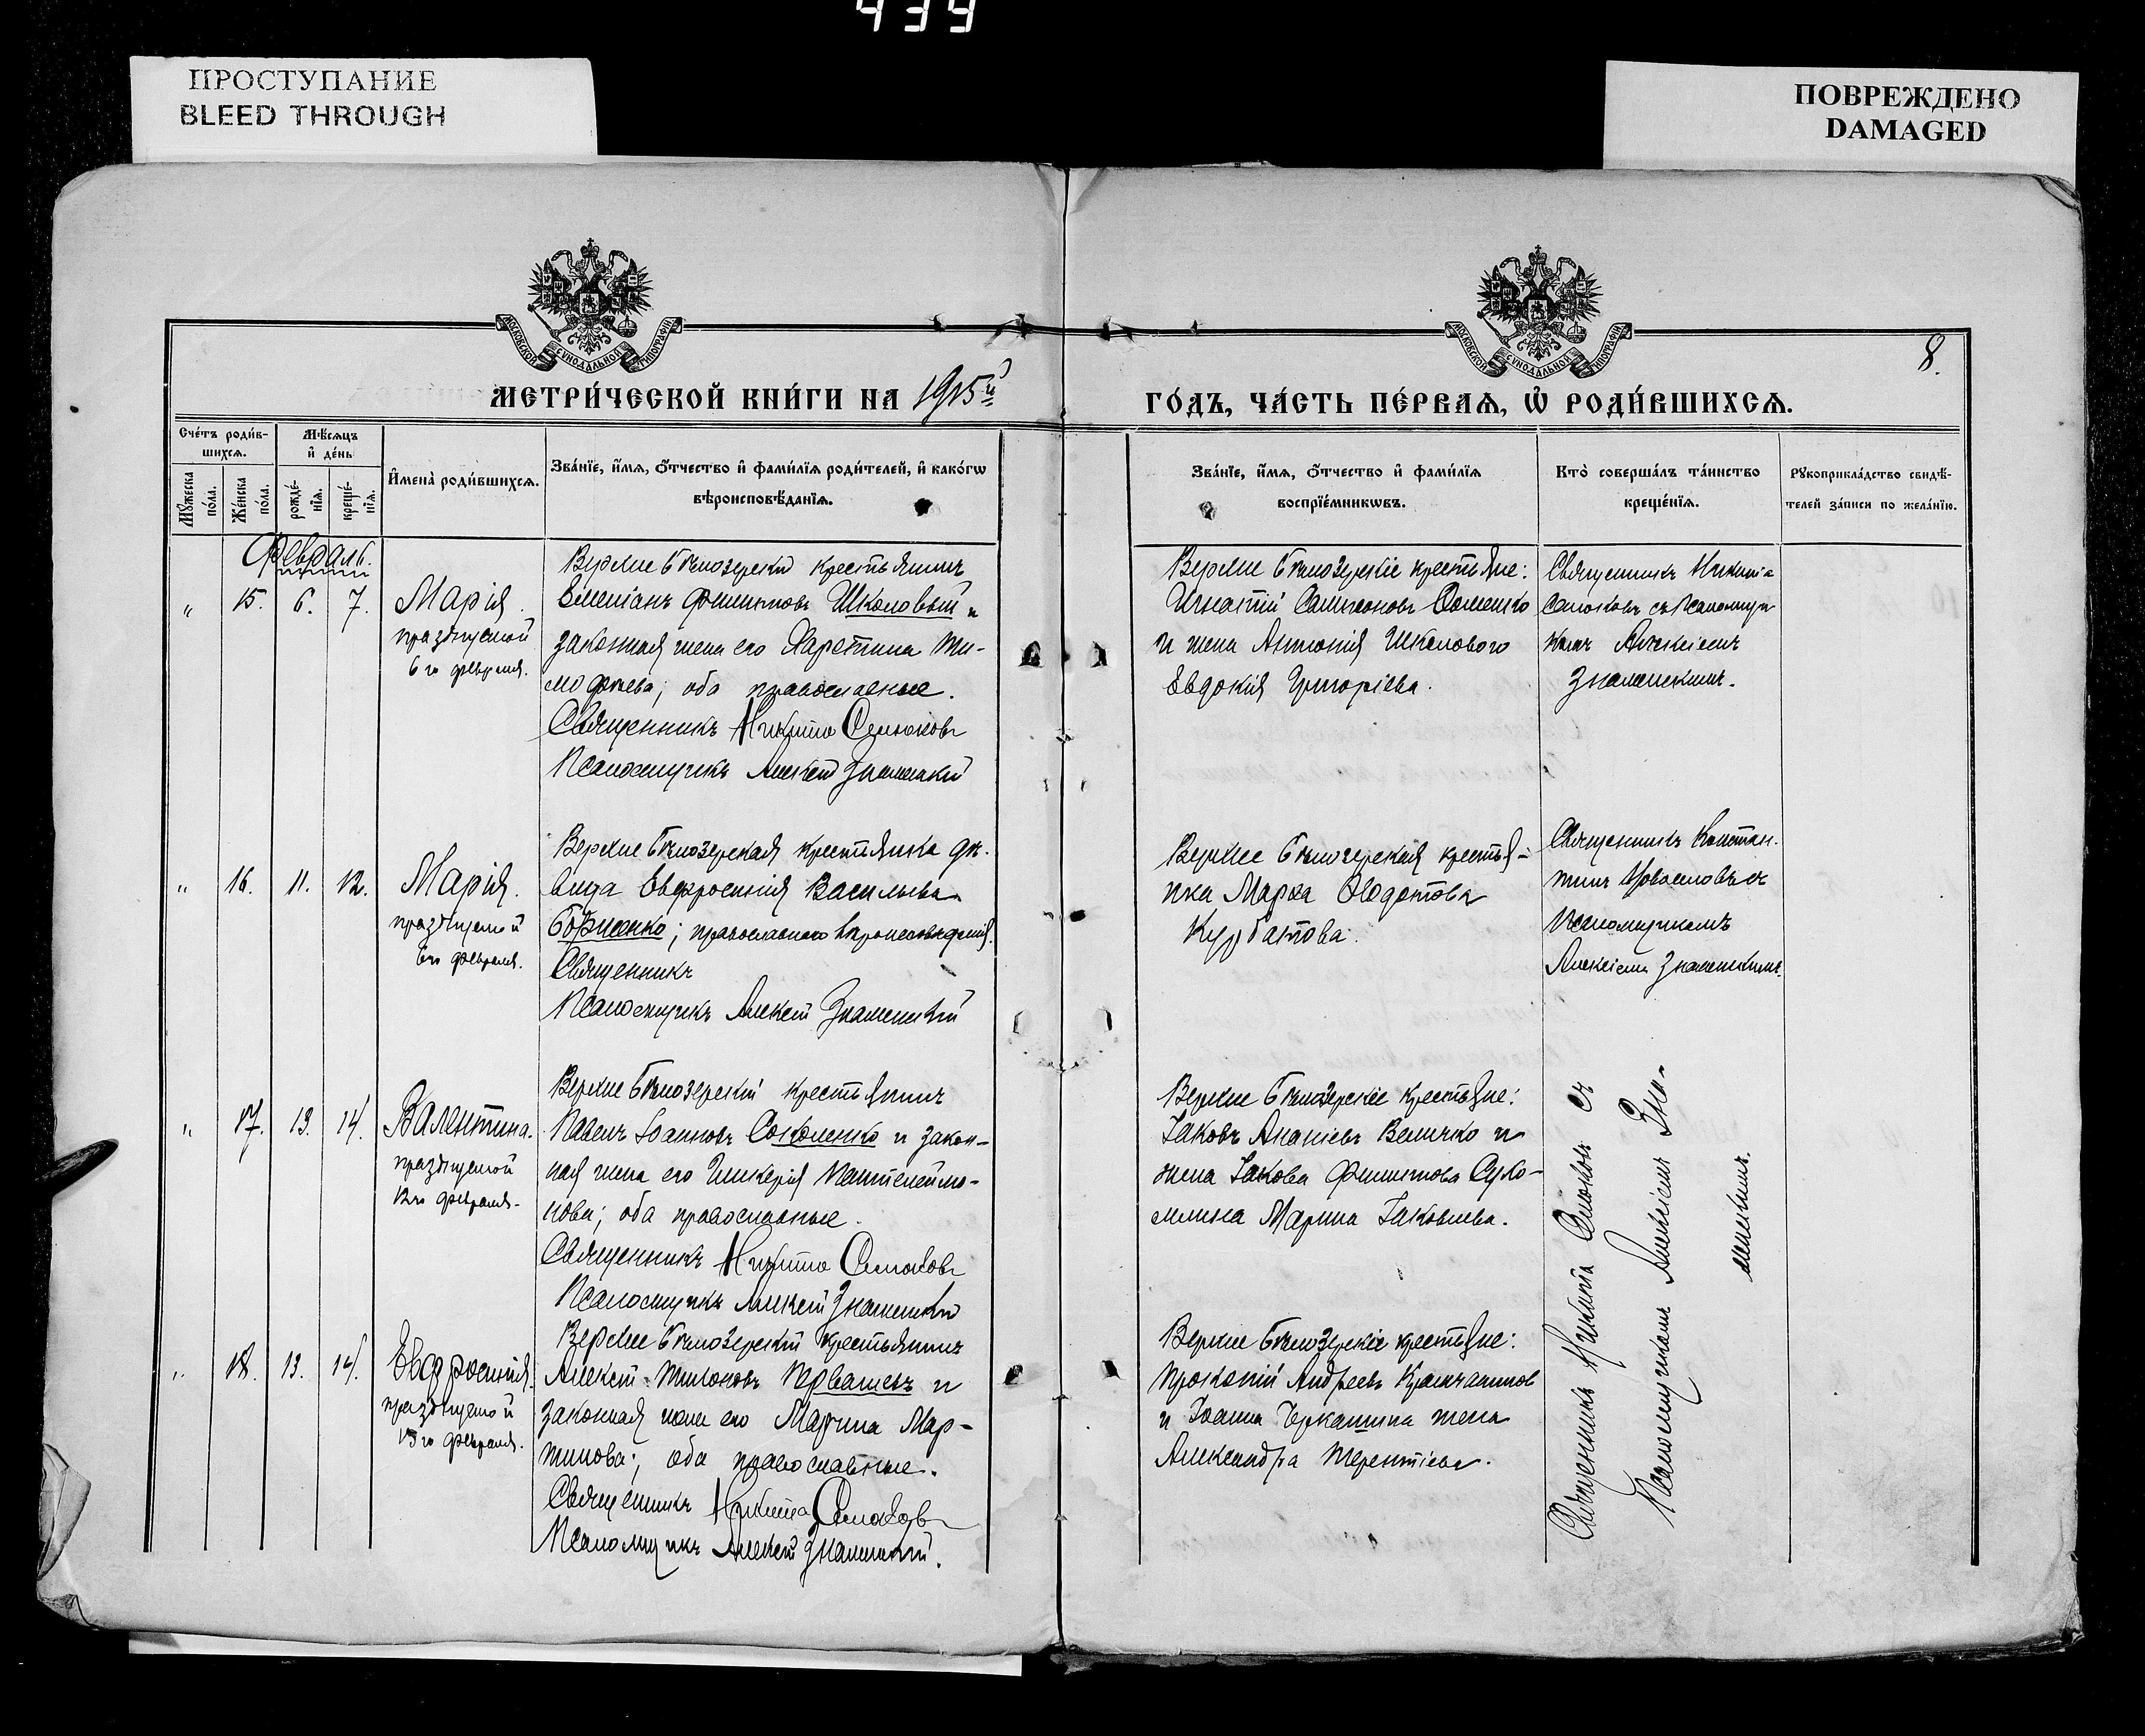 439
ПРОСТУПАНИЕ
BLEED THROUGH
ПОВРЕЖДЕНО
DAMAGED
МОСКОВСКОЙ СѴНОДАЛЬНОЙ ТИПОГРАФІИ
МОСКОВСКОЙ СѴНОДАЛЬНОЙ ТИПОГРАФІИ
8.
МЕТРИ́ЧЕСКОЙ КНИ́ГИ НА 1915й
ГО́ДЪ, ЧА́СТЬ ПЕ́РВАѦ, Ѡ҆ РОДИ́ВШИХСѦ.
Сче́тъ роди́в-
шихсѧ.
Мѣ́сѧцъ
и҆ де́нь
Мꙋжеска
по́ла.
Же́нска
по́ла.
рожде́-
нїѧ.
креще́-
нїѧ.
И҆мена̀ роди́вшихсѧ.
Зва́нїе, и҆́мѧ, ѻ҆́тчество и҆ фами́лїѧ роди́телей, и҆ како́гѡ
вѣроисповѣ́данїѧ.
Зва́нїе, и҆́мѧ, ѻ҆́тчество и҆ фами́лїѧ
воспрїе́мникѡвъ.
Кто̀ соверша́лъ та́инство
креще́нїѧ.
Рꙋкоприкла́дство свидѣ́-
телей за́писи по жела́нїю.
Февраль.
„ 15. 6. 7. Марія.
празднуемой
6го февраля.
Верхне Бѣлозерскій крестьянинъ
Емеліанъ Филипповъ Школовый и
законная жена его Харетина Ти-
мофѣева; оба православные.
Священникъ Никита Семоковъ
Псаломщикъ Алексѣй Знаменскій
Верхне Бѣлозерскіе крестьяне:
Игнатій Самсоновъ
и жена Антонія Школового
Евдокія Григоріева.
Священникъ Никита
Семоковъ съ Псаломщи
комъ Алексіемъ
Знаменскимъ.
„ 16. 11. 12. Марія.
празднуемой
6го февраля.
Верхне Бѣлозерская крестьянка дѣ-
вица Евфросинія Васильева
; православнаго вѣроисповѣданія.
Священникъ
Псаломщикъ Алексѣй Знаменскій
Верхне Бѣлозерская крестья-
нка Марѳа Ѳедотова
Курбатова.
Священникъ Констан-
тинъ съ
Псаломщикомъ
Алексіемъ Знаменскимъ.
„ 17. 13. 14. Валентина.
празднуемой
12го февраля.
Верхне Бѣлозерскій крестьянинъ
Павелъ Іоанновъ Соколенко и закон-
ная жена его Гликерія Пантелеймо-
нова; оба православные.
Священникъ Никита Семоковъ
Псаломщикъ Алексѣй Знаменскій
Верхне Бѣлозерскіе крестьяне:
Іаковъ Ананіевъ Величко и
жена Іакова Филиппова Сухо-
млина Марина Іаковлева.
Священникъ Никита Семоковъ съ
Псаломщикомъ Алексіемъ Зна-
менскимъ.
„ 18. 13. 14. Евфросинія.
празднуемой
15го февраля.
Верхне Бѣлозерскій крестьянинъ
Алексѣй Тихоновъ и
законная жена его Марина Мар-
тинова; оба православные.
Священникъ Никита Семоковъ
Псаломщикъ Алексѣй Знаменскій.
Верхне Бѣлозерскіе крестьяне:
Прокопій Андреевъ
и Іоанна жена
Александра Терентіева.